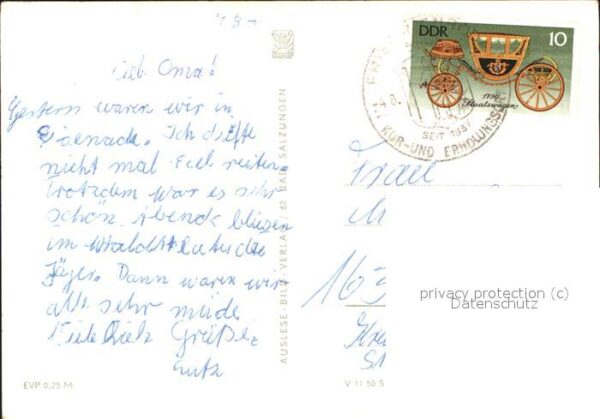 Lieb Oma!
Gestern waren wir in
Eisenach. Ich durfte
nicht mal Esel reiten.
Trotzdem war es sehr
schön. Abends bliesen
im Wald
Jäger. Dann waren wir
alle sehr müde
Viele Grüße
Lutz
EVP 0,25 M
AUSLESE-BILD-VERLAG / 62 BAD SALZUNGEN
V 11 50 S
DDR
10
1790
Staatswagen
SEIT 1837
KUR-UND ERHOLUNGS
Frau
M
163
privacy protection (c)
Datenschutz